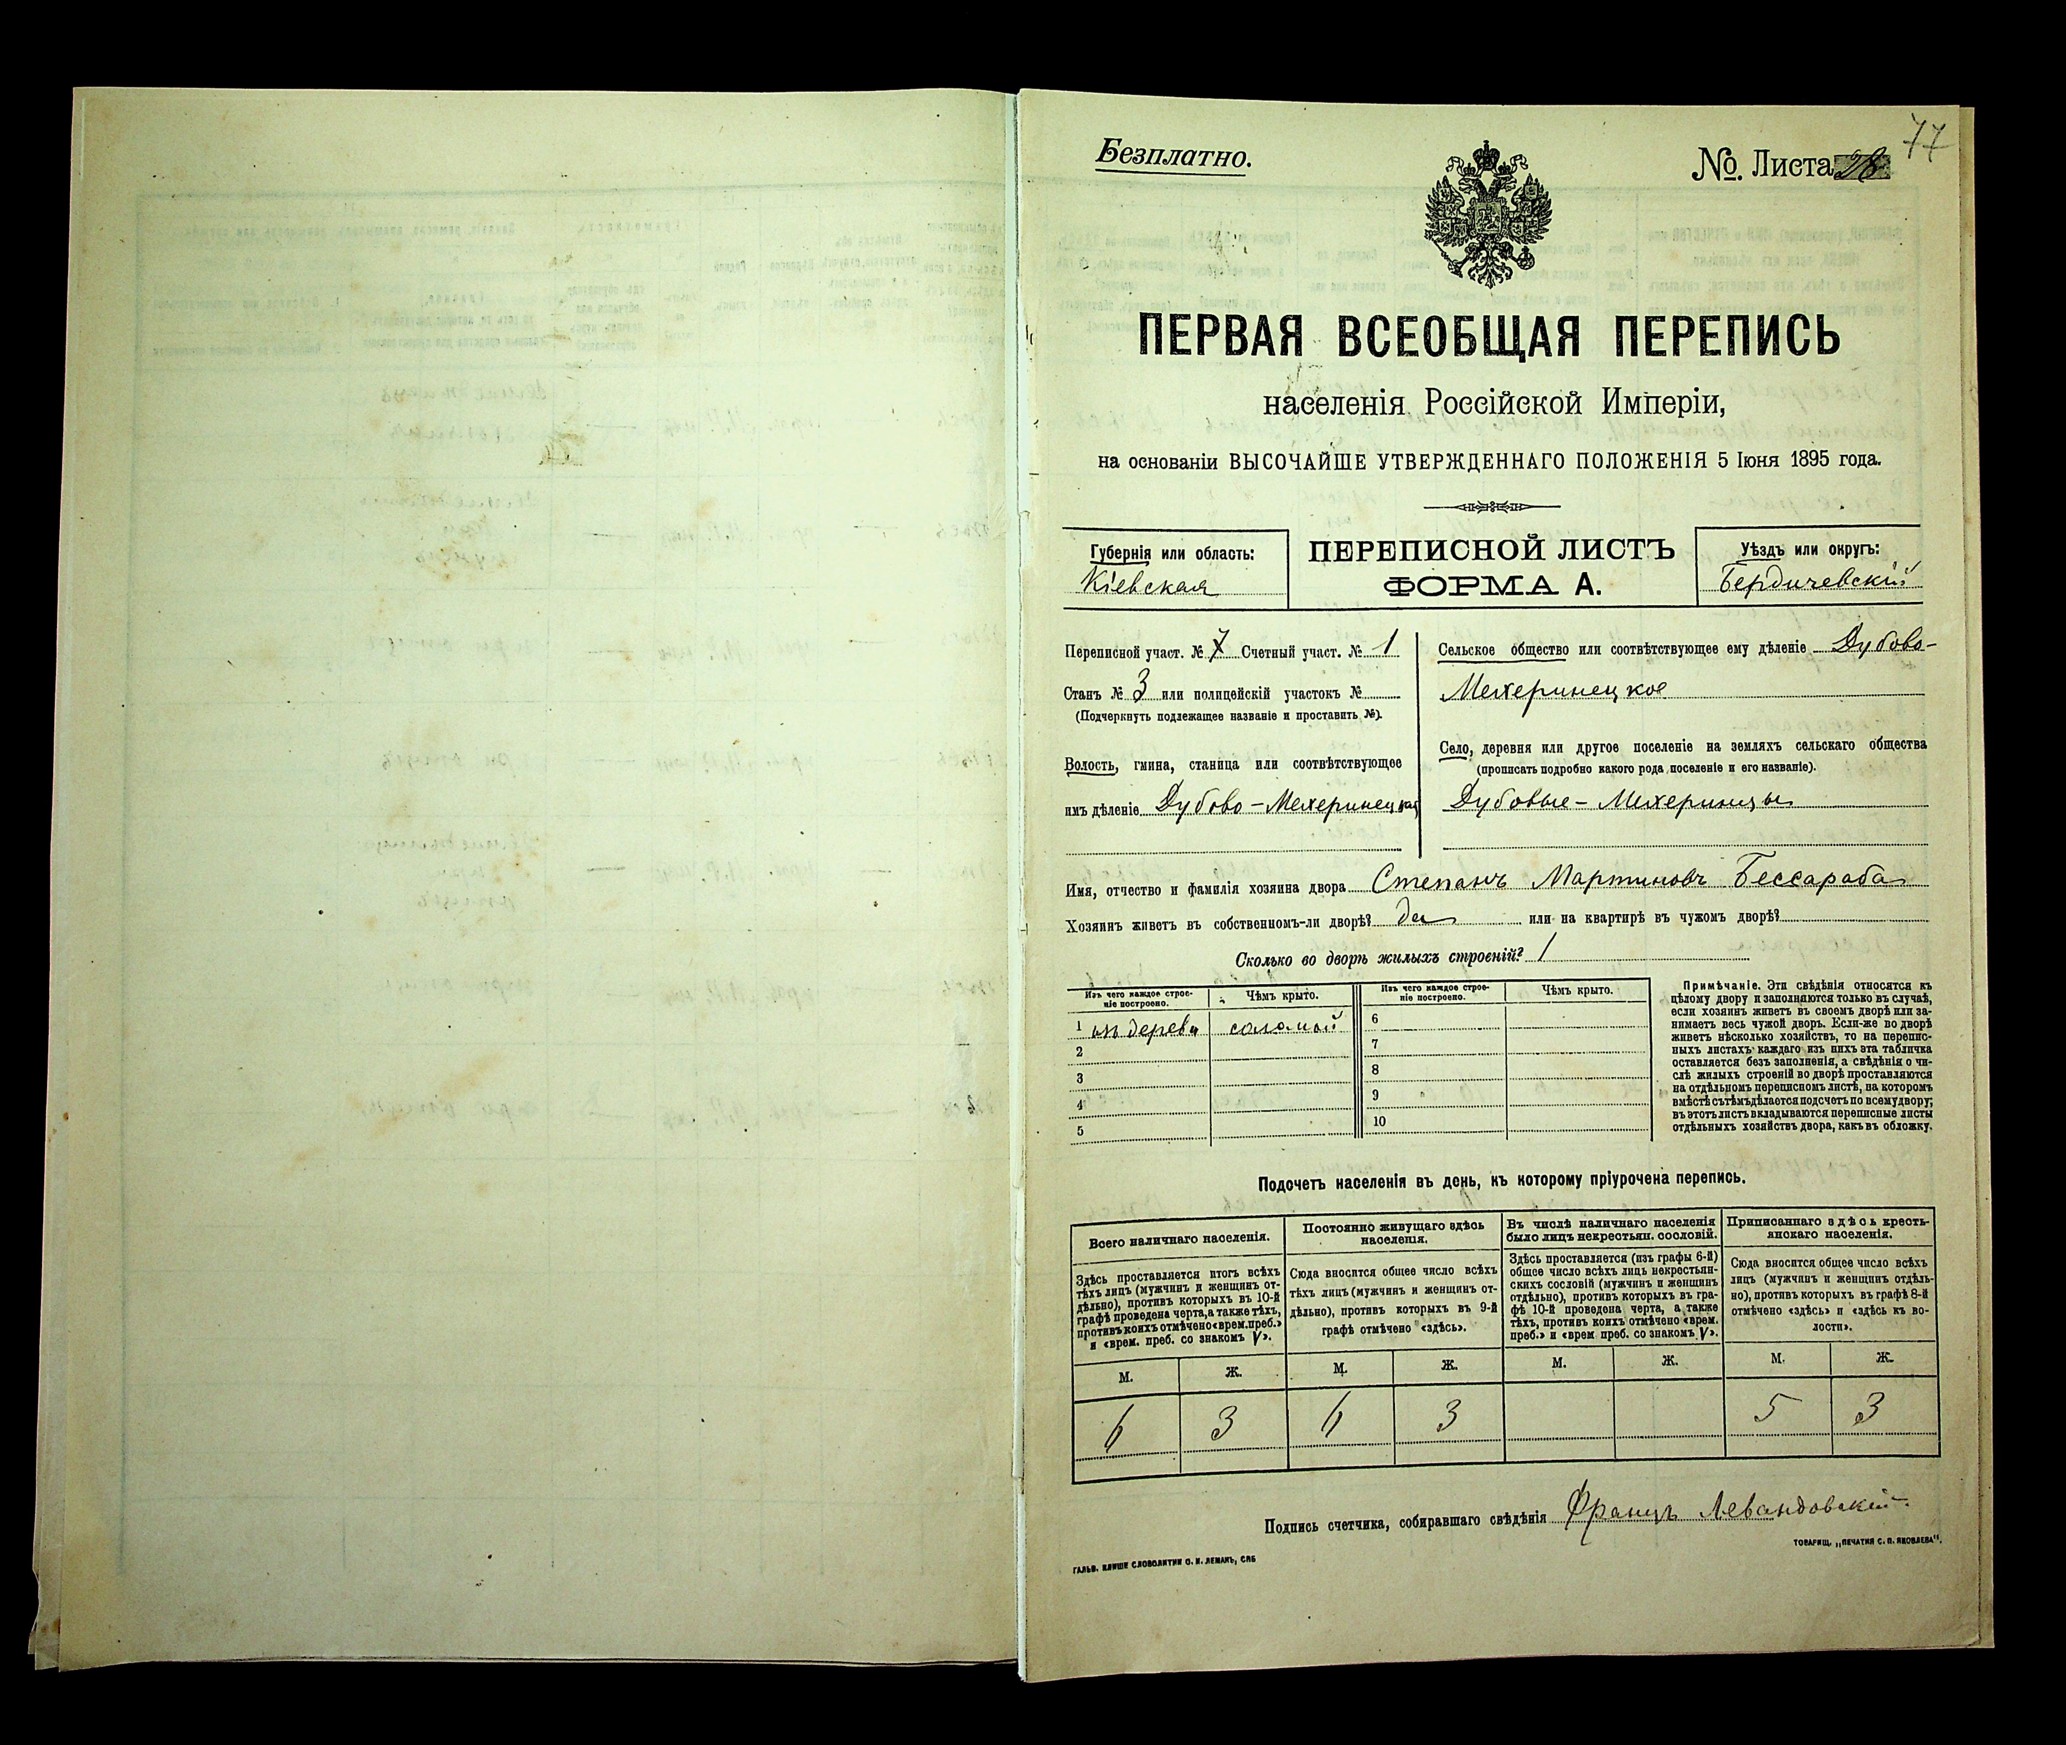 77
Безплатно.
№. Листа 28
ПЕРВАЯ ВСЕОБЩАЯ ПЕРЕПИСЬ
населенія Россійской Имперіи,
на основаніи ВЫСОЧАЙШЕ УТВЕРЖДЕННАГО ПОЛОЖЕНІЯ 5 Іюня 1895 года.
Губернія или область:
Кіевская
ПЕРЕПИСНОЙ ЛИСТЪ
ФОРМА А.
Уѣздъ или округъ:
Бердичевскій
Переписной участ. № 7 Счетный участ. № 1
Станъ № 3 или полицейскій участокъ №
(Подчеркнуть подлежащее названіе и проставить №).
Волость, гмина, станица или соотвѣтствующее
имъ дѣленіе Дубово-Махеринецкая
Сельское общество или соотвѣтствующее ему дѣленіе Дубово-
Махеринецкое
Село, деревня или другое поселеніе на земляхъ сельскаго общества
(прописать подробно какого рода поселеніе и его названіе).
Дубовые-Махеринцы
Имя, отчество и фамилія хозяина двора Степанъ Мартиновъ Бессараба
Хозяинъ живетъ въ собственномъ-ли дворѣ? да или на квартирѣ въ чужомъ дворѣ?
Сколько во дворѣ жилыхъ строеній? 1
Изъ чего каждое строе-
ніе построено.
Чѣмъ крыто.
1 изъ дерева соломой
2
3
4
5
Изъ чего каждое строе-
ніе построено.
Чѣмъ крыто.
6
7
8
9
10
Примѣчаніе. Эти свѣдѣнія относятся къ
цѣлому двору и заполняются только въ случаѣ,
если хозяинъ живетъ въ своемъ дворѣ или за-
нимаетъ весь чужой дворъ. Если-же во дворѣ
живетъ нѣсколько хозяйствъ, то на перепис-
ныхъ листахъ каждаго изъ нихъ эта табличка
оставляется безъ заполненія, а свѣдѣнія о чи-
слѣ жилыхъ строеній во дворѣ проставляются
на отдѣльномъ переписномъ листѣ, на которомъ
вмѣстѣ съ тѣмъ дѣлается подсчетъ по всему двору;
въ этотъ листъ вкладываются переписные листы
отдѣльныхъ хозяйствъ двора, какъ въ обложку.
Подсчетъ населенія въ день, къ которому пріурочена перепись.
Всего наличнаго населенія.
Здѣсь проставляется итогъ всѣхъ
тѣхъ лицъ (мужчинъ и женщинъ от-
дѣльно), противъ которыхъ въ 10-й
графѣ проведена черта, а также тѣхъ,
противъ коихъ отмѣчено «врем. преб.»
и «врем. преб. со знакомъ V».
М. Ж.
6 3
Постоянно живущаго здѣсь
населенія.
Сюда вносится общее число всѣхъ
тѣхъ лицъ (мужчинъ и женщинъ от-
дѣльно), противъ которыхъ въ 9-й
графѣ отмѣчено «здѣсь».
М. Ж.
6 3
Въ числѣ наличнаго населенія
было лицъ некрестьян. сословій.
Здѣсь проставляется (изъ графы 6-й)
общее число всѣхъ лицъ некрестьян-
скихъ сословій (мужчинъ и женщинъ
отдѣльно), противъ которыхъ въ гра-
фѣ 10-й проведена черта, а также
тѣхъ, противъ коихъ отмѣчено «врем.
преб.» и «врем преб. со знакомъ V».
М. Ж.
Приписаннаго здѣсь кресть-
янскаго населенія.
Сюда вносится общее число всѣхъ
лицъ (мужчинъ и женщинъ отдѣль-
но), противъ которыхъ въ графѣ 8-й
отмѣчено «здѣсь» и «здѣсь къ во-
лости».
М. Ж.
5 3
Подпись счетчика, собиравшаго свѣдѣнія Францъ Левандовскій.
ГАЛЬВ. КЛИШЕ СЛОВОЛИТНИ О. И. ЛЕМАНЪ, СПБ
ТОВАРИЩ. „ПЕЧАТНЯ С. П. ЯКОВЛЕВА".